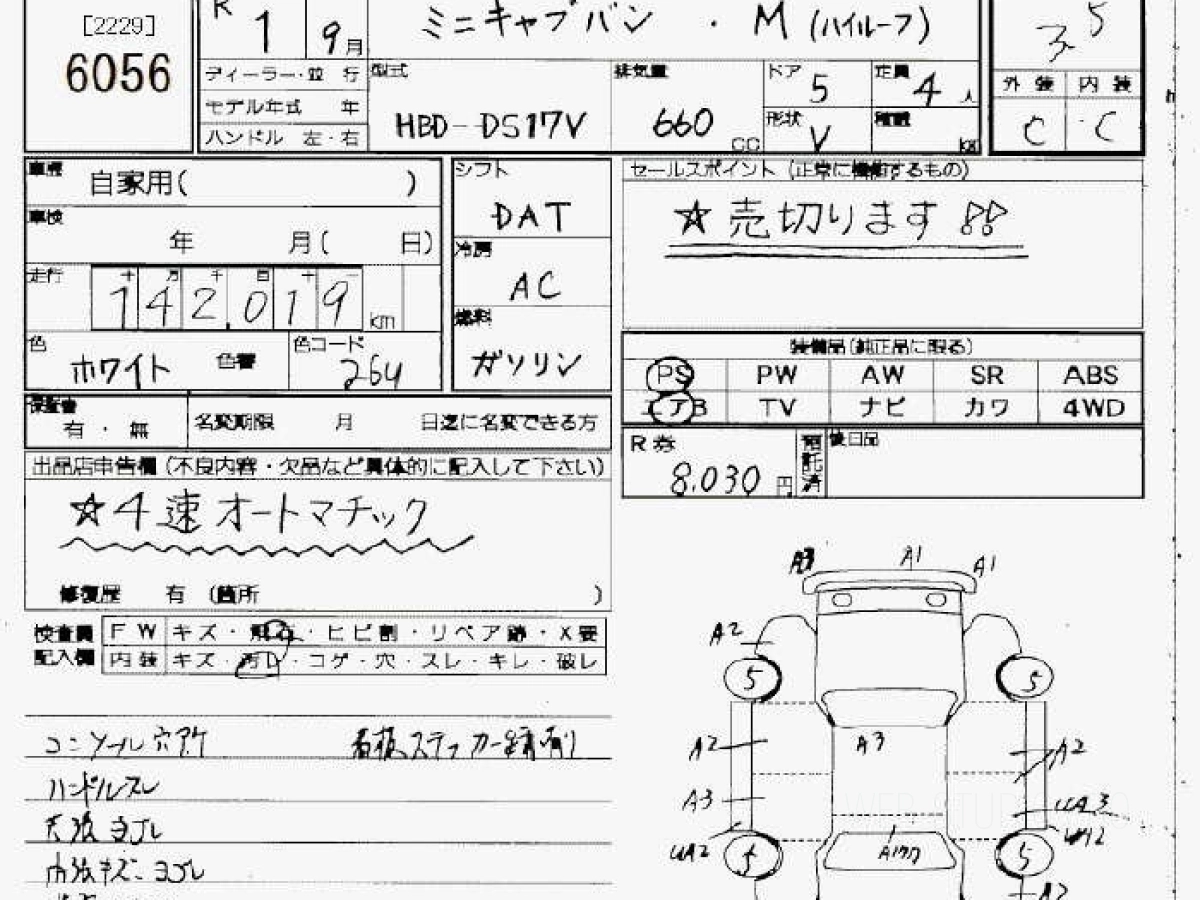 [2229]
6056
R 1 9月
ミニキャブバン ・ M (ハイルーフ)
3.5
ディーラー・並 行
モデル年式 年
ハンドル 左・右
型式
HBD-DS17V
排気量
660 CC
ドア 5
定員 4 人
形状 V
積載 kg
外 装 内 装
C C
車歴 自家用( )
車検
年 月( 日)
走行 十 万 千 百 十 一
142,019 km
色 ホワイト 色替
色コード 264
シフト
DAT
冷房
AC
燃料
ガソリン
セールスポイント (正常に機能するもの)
☆売切ります!!
装備品(純正品に限る)
PS PW AW SR ABS
エアB TV ナビ カワ 4WD
保証書
有 ・ 無
名変期限 月 日迄に名変できる方
R券
8.030 円
後日品
出品店申告欄 (不良内容・欠品など具体的に記入して下さい)
☆4速オートマチック
修復歴 有 (箇所 )
検査員
記入欄
FW キズ・飛石・ヒビ割・リペア跡・X要
内装 キズ・汚レ・コゲ・穴・スレ・キレ・破レ
コンソール穴アケ 看板ステッカー跡有り
ハンドルスレ
天張ヨゴレ
内張キズ・ヨゴレ
A1 A1
A2
5 5
A2 A3 A2
A3 UA3
UA2 UA2
5 5
A2